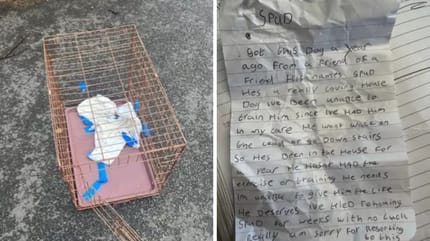 SPUD
Got this Dog a year
ago From a Friend of a
Friend His names SPUD
Hes a really loving House
Dog ive been unable to
train Him since ive Had Him
in my care He wont walk on
the lead or go Down stairs
So Hes been in the House For
a year He Hasnt Had the
exercise or training He needs
im unable to give Him the Life
He Deserves ive tried rehoming
SPUD For weeks with no luck
really am sorry For resorting
to this